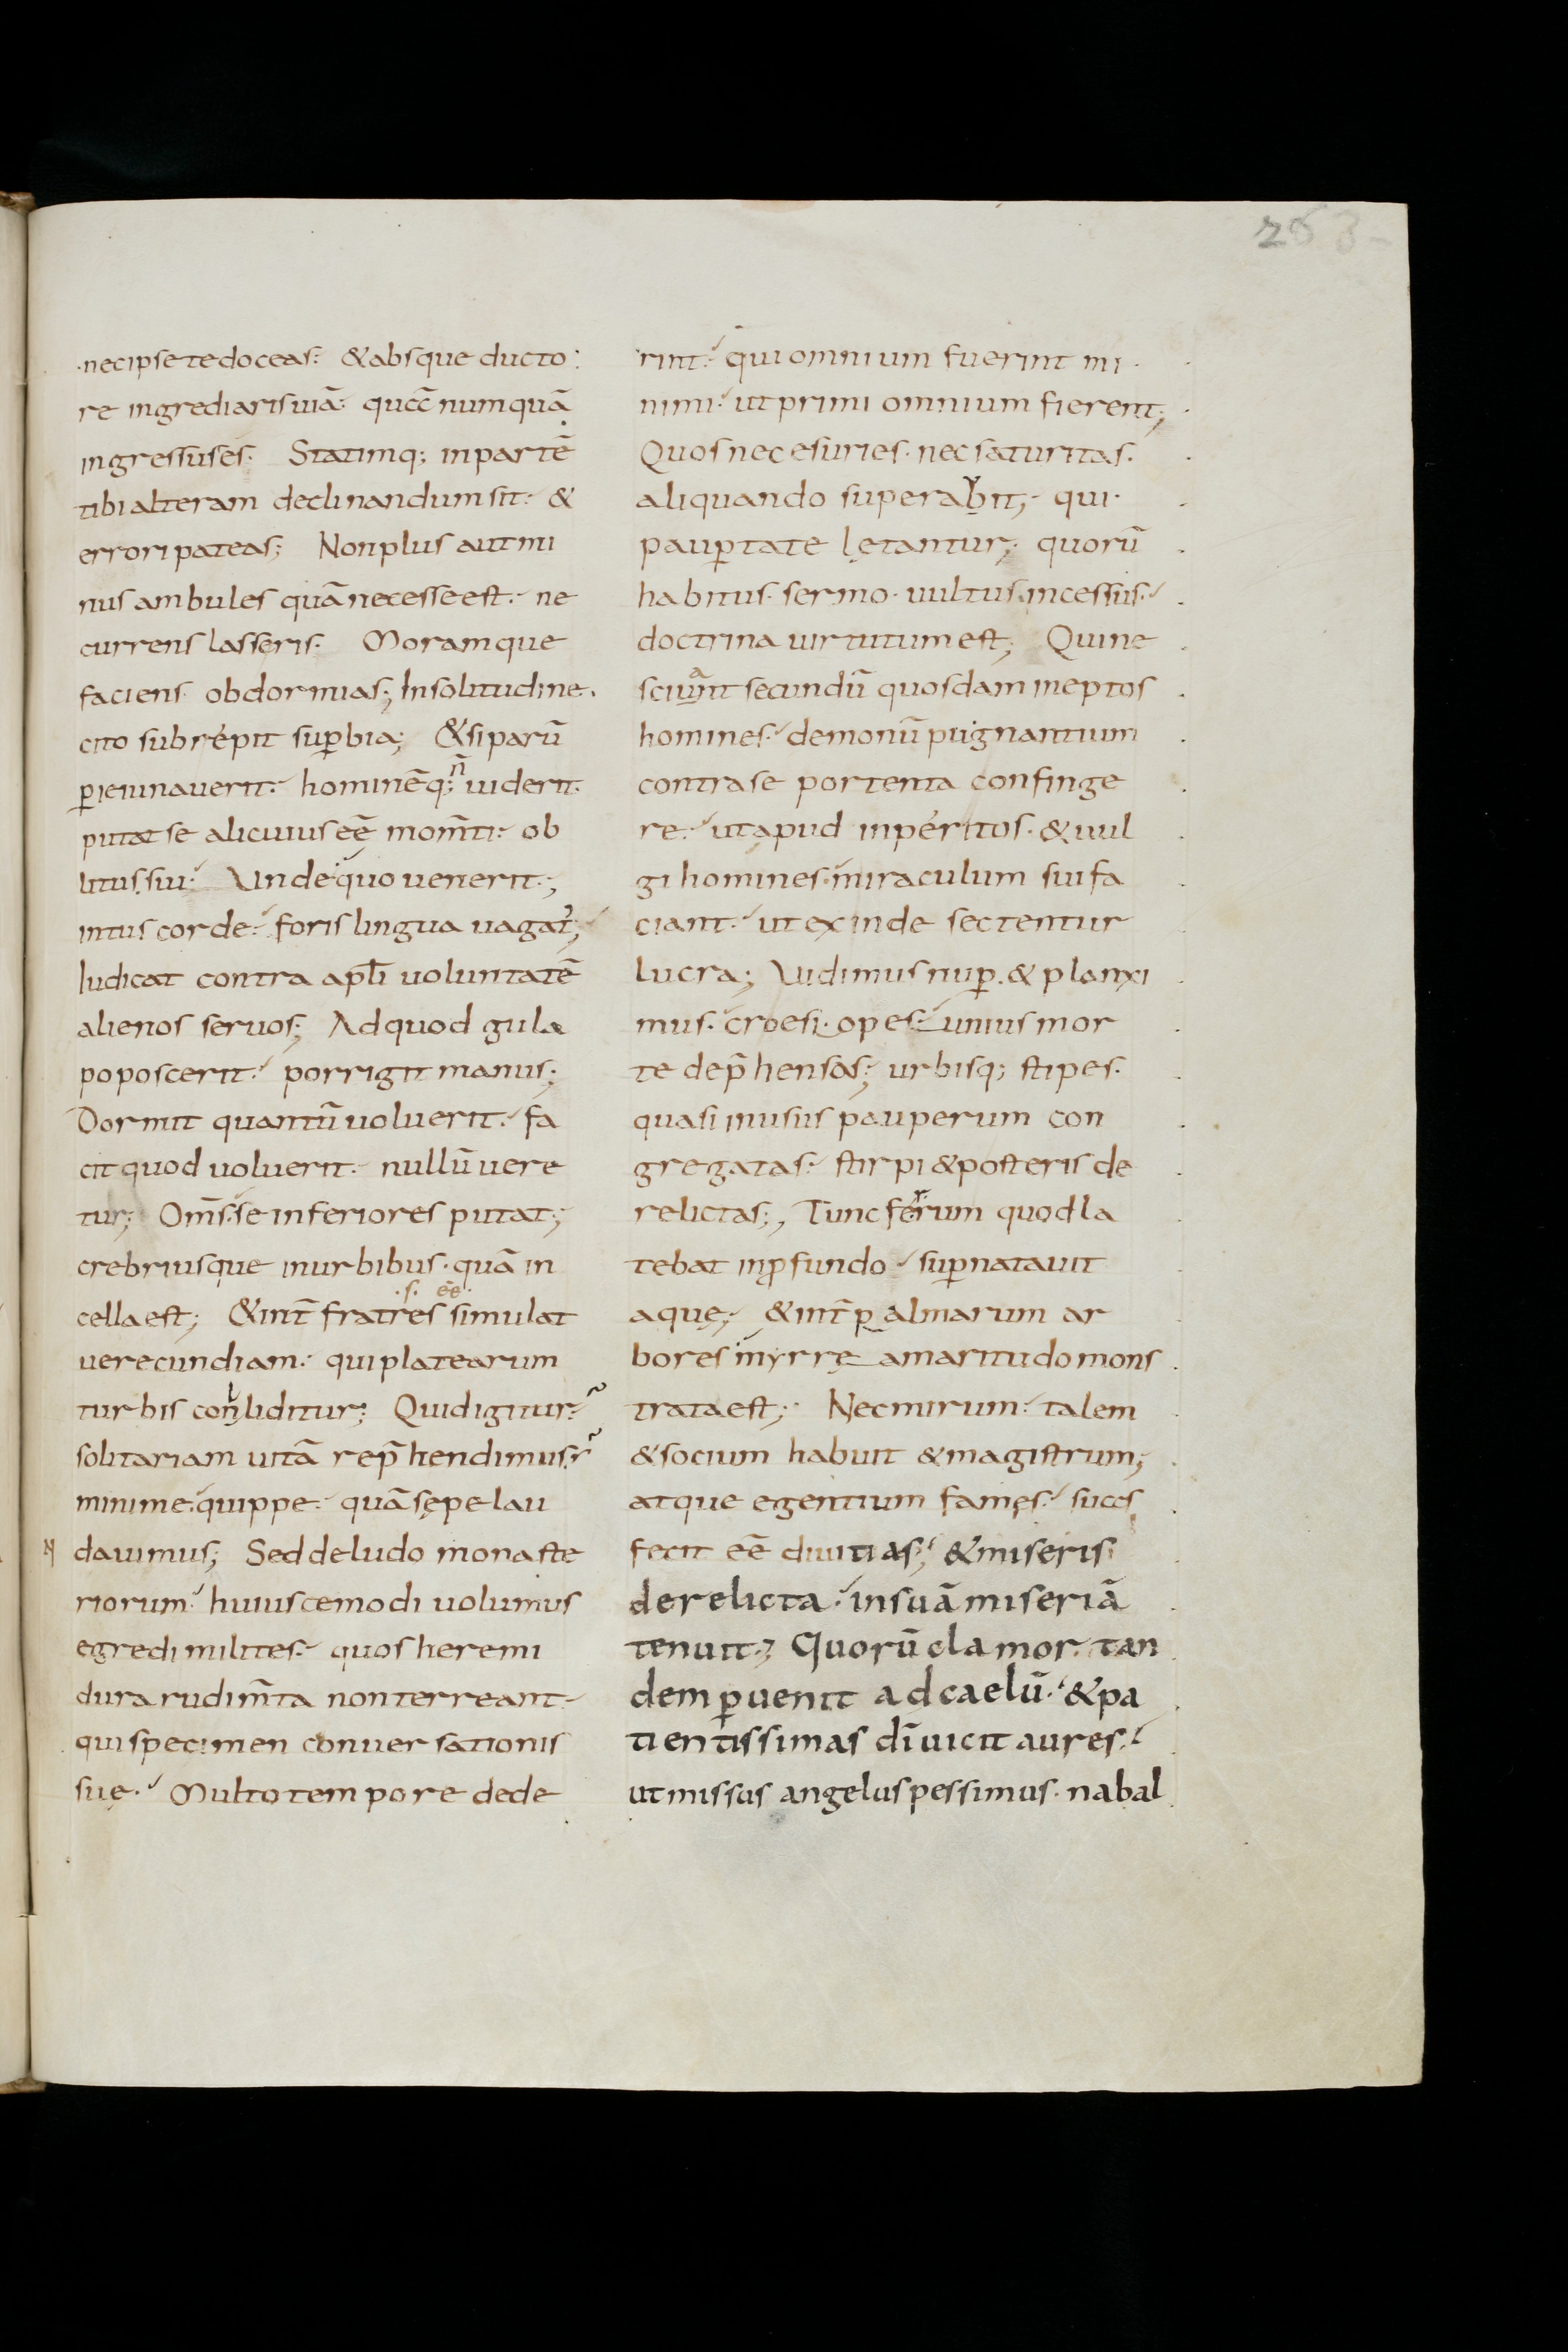 263
nec ipse te doceas. & absque ducto
re ingrediaris uiā. quā numquā
ingressus es. Statimq; in partē
tibi alteram declinandum sit. &
errori pateas; Non plus aut mi
nus ambules quā necesse est. ne
currens lasseris. Moramque
faciens obdormias; In solitudine
cito subrepit sup̄bia; & si parū
p̄ieiunauerit. hominēq; ñ uiderit.
putat se alicuius eē mom̄ti. ob
litus sui. Unde quo uenerit;
intus corde. foris lingua uagat̄;
Iudicat contra apl̄i uoluntatē
alienos seruos; Ad quod gula
poposcerit. porrigit manus;
Dormit quantū uoluerit. fa
cit quod uoluerit. nullū uere
tur; Om̄s se inferiores putat;
crebriusque in urbibus. quā in
.s. eē.
cella est; & int̄ fratres simulat
uerecundiam. qui platearum
turbis conliditur; Quid igitur.
solitariam uitā rep̄hendimus.
minime quippe. quā sępe lau
dauimus; Sed de ludo monaste
riorum. huiuscemodi uolumus
egredi milites. quos heremi
dura rudim̄ta non terreant.
qui specimen conuersationis
suę. Multo tempore dede
rint. qui omnium fuerint mi
nimi. ut primi omnium fierent;
Quos nec esuries. nec saturitas.
aliquando superabit; qui
paup̄tate lętantur; quorū
habitus. sermo. uultus. incessus.
doctrina uirtutum est; Qui ne
sciunt secundū quosdam ineptos
homines. demonū pugnantium
contra se portenta confinge
re. ut apud inperitos. & uul
gi homines. miraculum sui fa
ciant. ut exinde sectentur
lucra; Uidimus nup̄. & planxi
mus. croesi. opes. unius mor
te dep̄hensas; urbisq; stipes.
quasi in usus pauperum con
gregatas. stirpi & posteris de
relictas; Tunc ferrum quod la
tebat in p̄fundo. sup̄natauit
aquę; & int̄ palmarum ar
bores myrrę amaritudo mons
trata est; Nec mirum. talem
& socium habuit & magistrum;
atque egentium famęs. suas
fecit eē diuitias; & miseris
derelicta. in suā miseriā
tenuit; Quorū clamor. tan
dem p̄uenit ad caelū. & pa
tientissimas dī uicit aures.
ut missus angelus pessimus. nabal